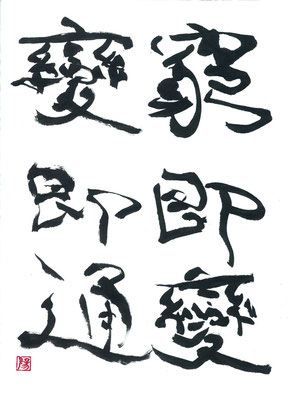 窮即變
變即通